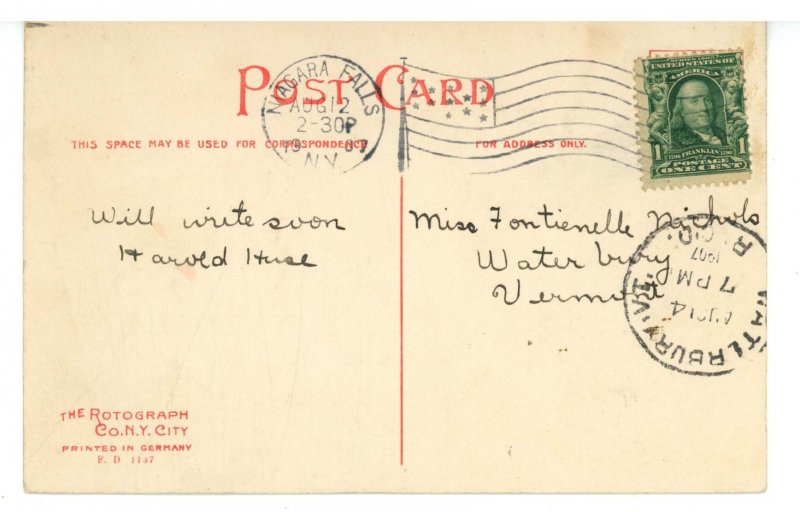 POST CARD
NIAGARA FALLS
AUG 12
2-30P
1907
N.Y.
THIS SPACE MAY BE USED FOR CORRESPONDENCE
FOR ADDRESS ONLY.
UNITED STATES OF
AMERICA
1
1706 FRANKLIN 1790
POSTAGE
ONE CENT
Will write soon
Harold Huse
Miss Fontienelle Nichols
Waterbury
Vermont
WATERBURY, VT.
AUG 14
7 PM
1907
REC'D.
THE ROTOGRAPH
CO. N.Y. CITY
PRINTED IN GERMANY
F. D 1137